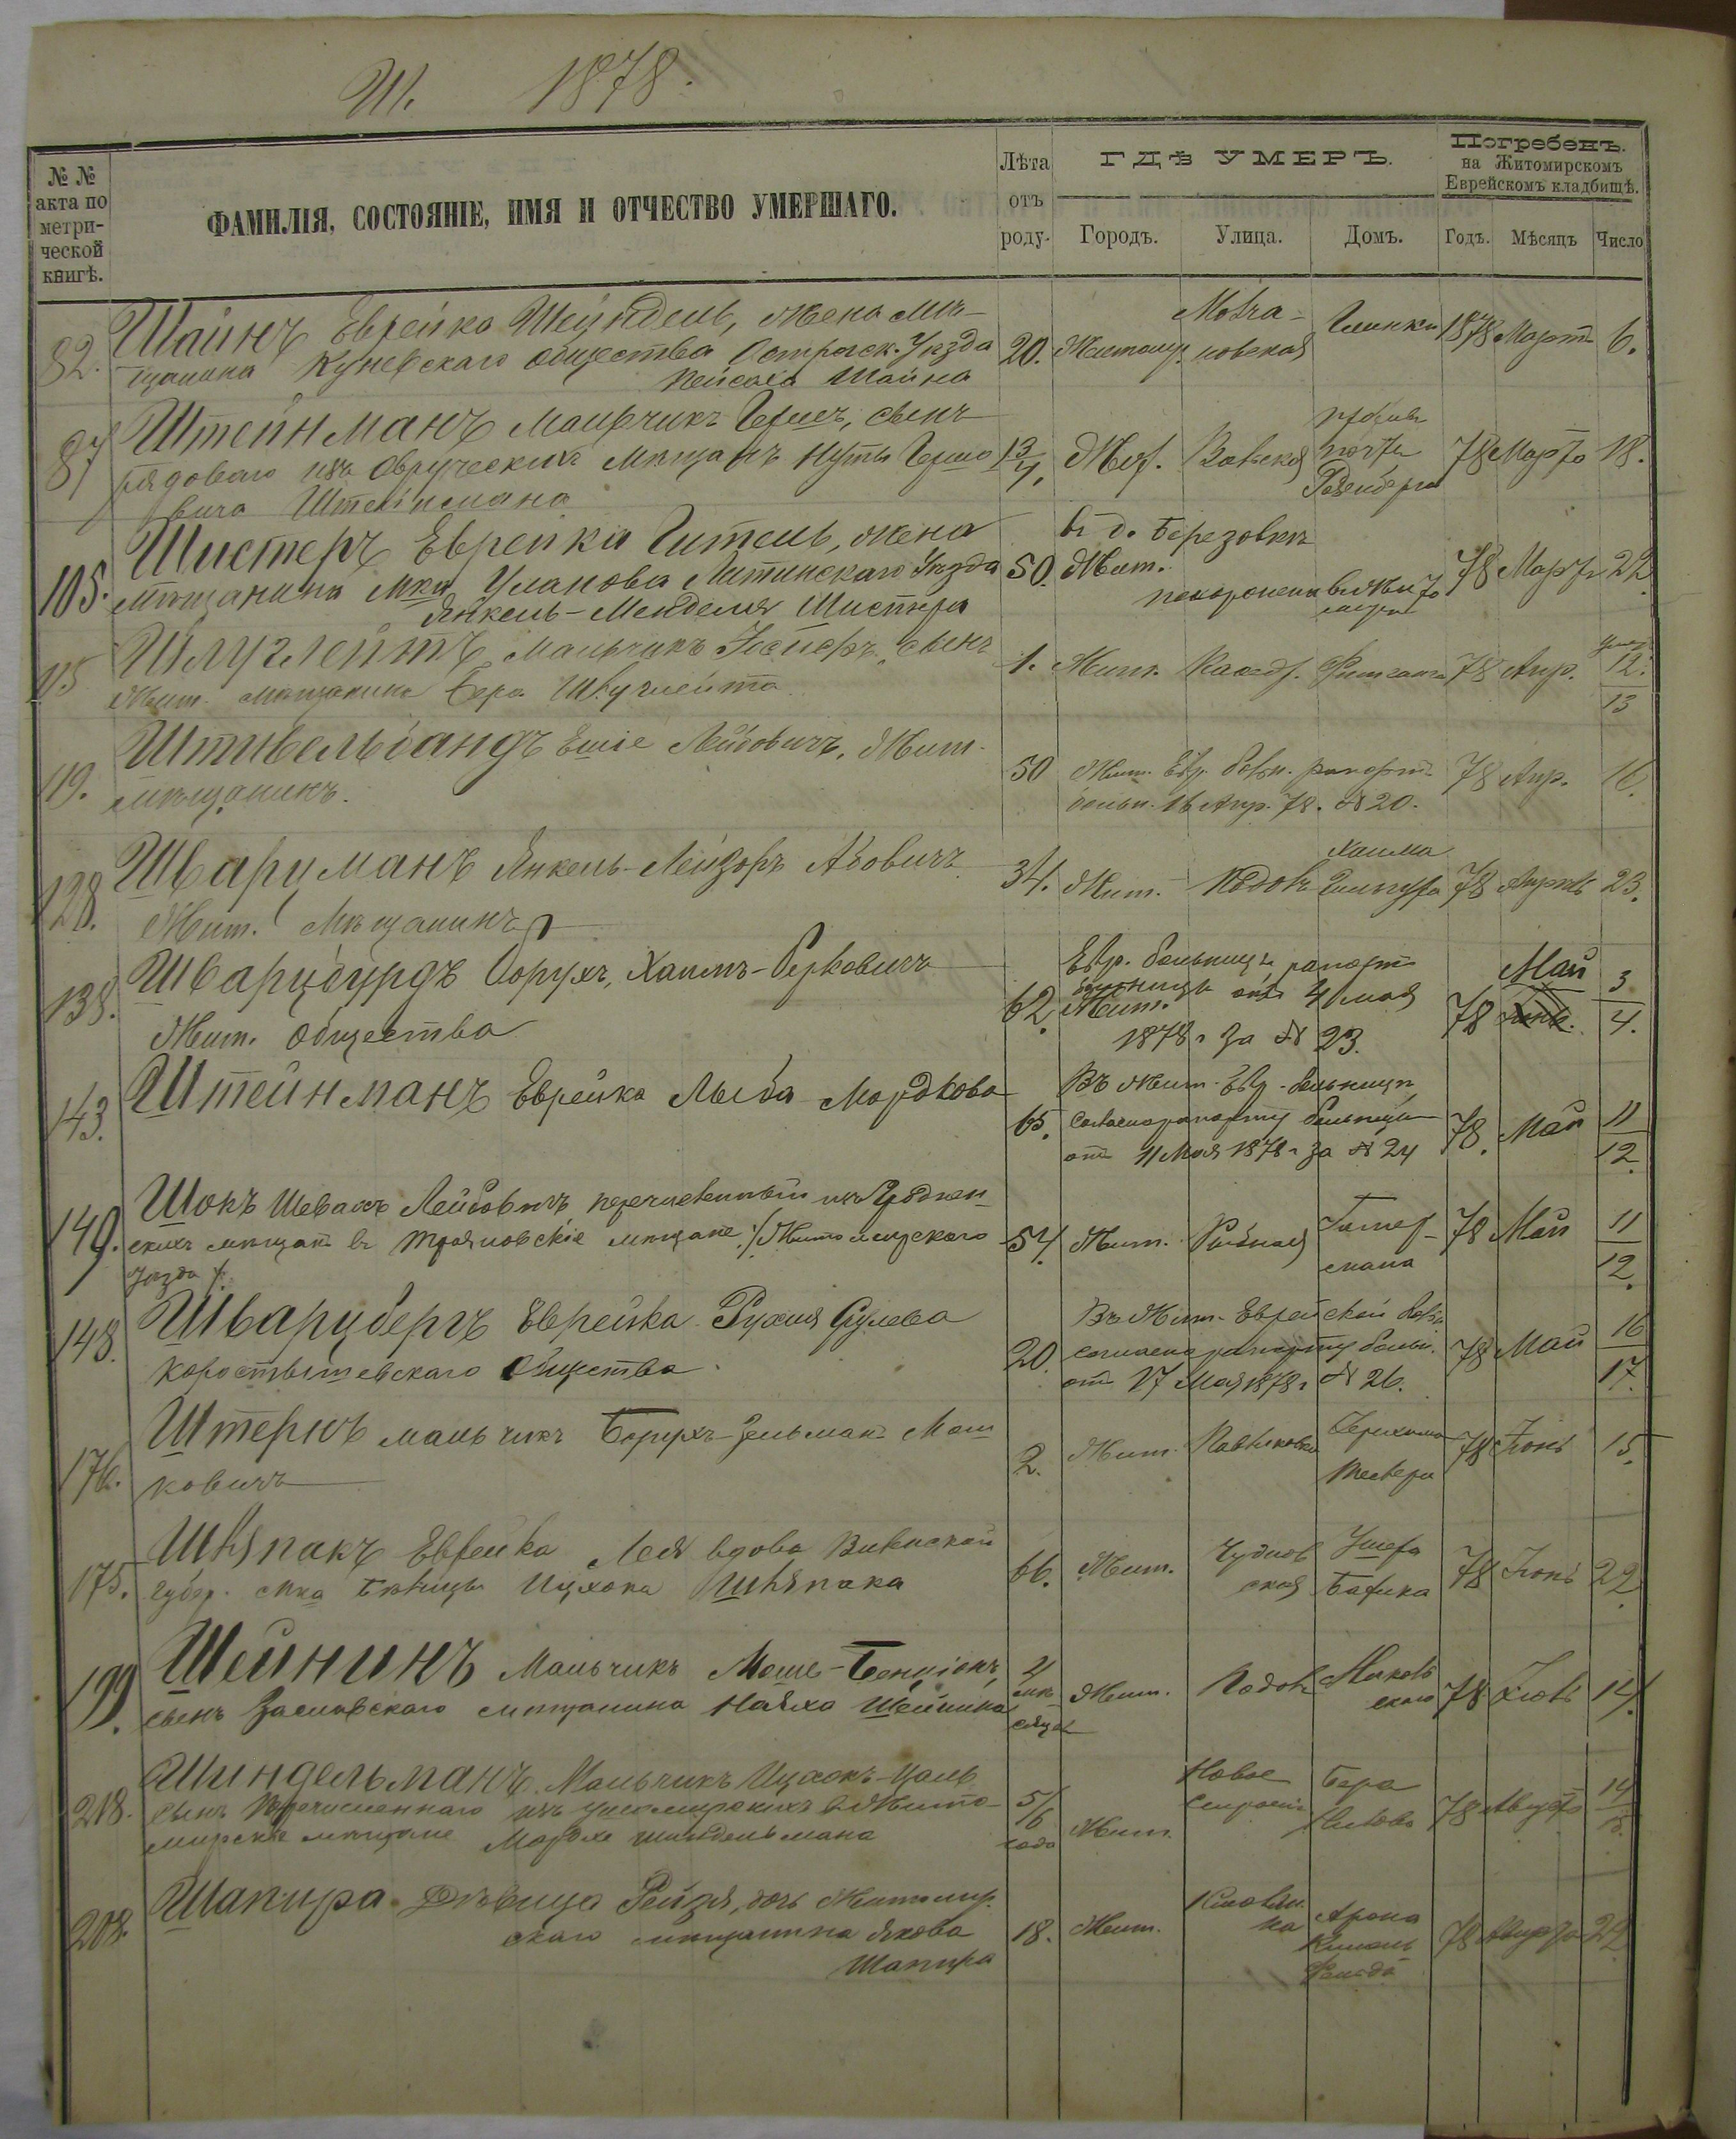 Ш. 1878.
№ № акта по метри-ческой книгѣ.
ФАМИЛІЯ, СОСТОЯНІЕ, ИМЯ И ОТЧЕСТВО УМЕРШАГО.
Лѣта отъ роду.
ГДѢ УМЕРЪ.
Городъ. Улица. Домъ.
Погребенъ.
на Житомирскомъ
Еврейскомъ кладбищѣ.
Годъ. Мѣсяцъ Число
82. Шайнъ Еврейка Шейндель, жена мѣ- 20. Житомир. 1878 Март 6.
щанина Куневскаго общества Острогск. Уѣзда
Пейсаха Шайна
87 Штейнманъ Мальчикъ Гершъ, сынъ 78 Март 18.
рядоваго изъ Овручскихъ мѣщанъ Нуты Гершо
вича Штейнмана
въ д. Березовкѣ
105. Шистеръ Еврейка Гитель, жена 50. Жит. 78 Март 22
мѣщанина Мка Уланова Литинскаго Уѣзда
похоронена въ Жито
мирѣ
Янкель-Менделя Шистера
115 Шлуглейтъ Мальчикъ Іосифъ, сынъ 1. Жит. Кафедр. 78 Апр. 12.
13
Жит. мѣщанина Бера Шлуглейта
119. Штивельбандъ Ешіе Лейбовичъ, Жит. 50 Жит. Евр. больн. рапорт 78 Апр. 16.
мѣщанинъ.
больн. 16 Апр. 78. № 20.
128. Шварцманъ Янкель-Лейзоръ Абовичъ 34. Жит. Подол. Хаима 78 Апрѣль 23.
Жит. Мѣщанинъ
138. Шварцбурдъ Борухъ, Хаимъ-Берковичъ 62. Жит. 78 Май 3
4.
Евр. больницѣ рапорт
больницы отъ 4 мая
1878 г за № 23.
Жит. Общества
143. Штейнманъ Еврейка Лыба Мордкова 65. 78. Май 11
12.
Въ Жит. Евр. больницѣ
согласно рапорту больницы
отъ 11 Мая 1878 г за № 24
149. Шокъ Шевахъ Лейбовичъ перечисленный изъ 54. Жит. Рыбная Гитер-
мана 78 Май 11
12.
скихъ мѣщанъ въ Трояновскіе мѣщане /Житомирскаго
Уѣзда/.
148. Шварцбергъ Еврейка Рухля Сулева 20. 78 Май 16
17.
Въ Жит. Еврейской боль
согласно рапорту больн.
отъ 17 Мая 1878 г № 26.
Коростышевскаго Общества.
176. Штернъ мальчикъ Борухъ-Зельманъ Мош 2. Жит. 78 Іюнь 15.
ковичъ
175. Шляпакъ Еврейка Лея вдова Виленской 66. Жит. Чуднов
ская 78 Іюнь 22.
губер. Ицхока Шляпака
199. Шейнинъ Мальчикъ Моше-Бенціонъ, 4
мѣ
сяца Жит. Подол. Маков
скаго 78 Іюль 14.
сынъ Заславскаго мѣщанина Шейнина
218. Шиндельманъ Мальчикъ Ицхокъ-Цаль 5/6
года Жит. Новое
Строеніе Бера 78 Август 14
15.
сынъ перечисленнаго изъ въ Жито-
мирскіе мѣщане Мордхе Шиндельмана
208. Шапира Дѣвица Рейзя, дочь Житомир. 18. Жит. Арона 78 Август 22
скаго мѣщанина Якова
Шапира